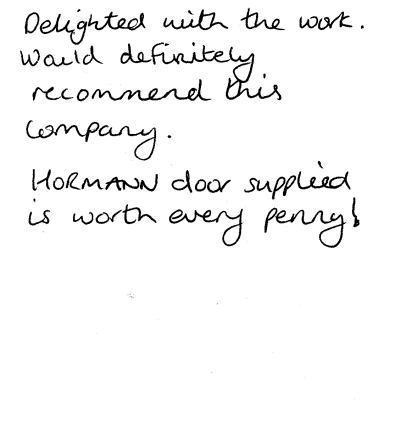 Delighted with the work.
Would definitely
recommend this
company.
HORMANN door supplied
is worth every penny!